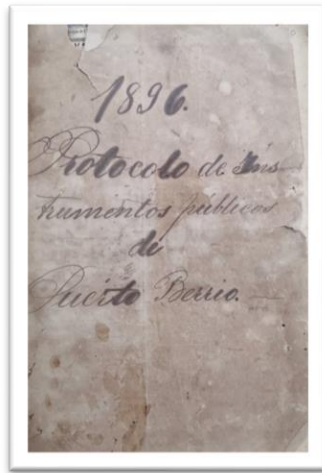 1896.
Protocolo de Ins-
trumentos públicos
de
Puerto Berrio.